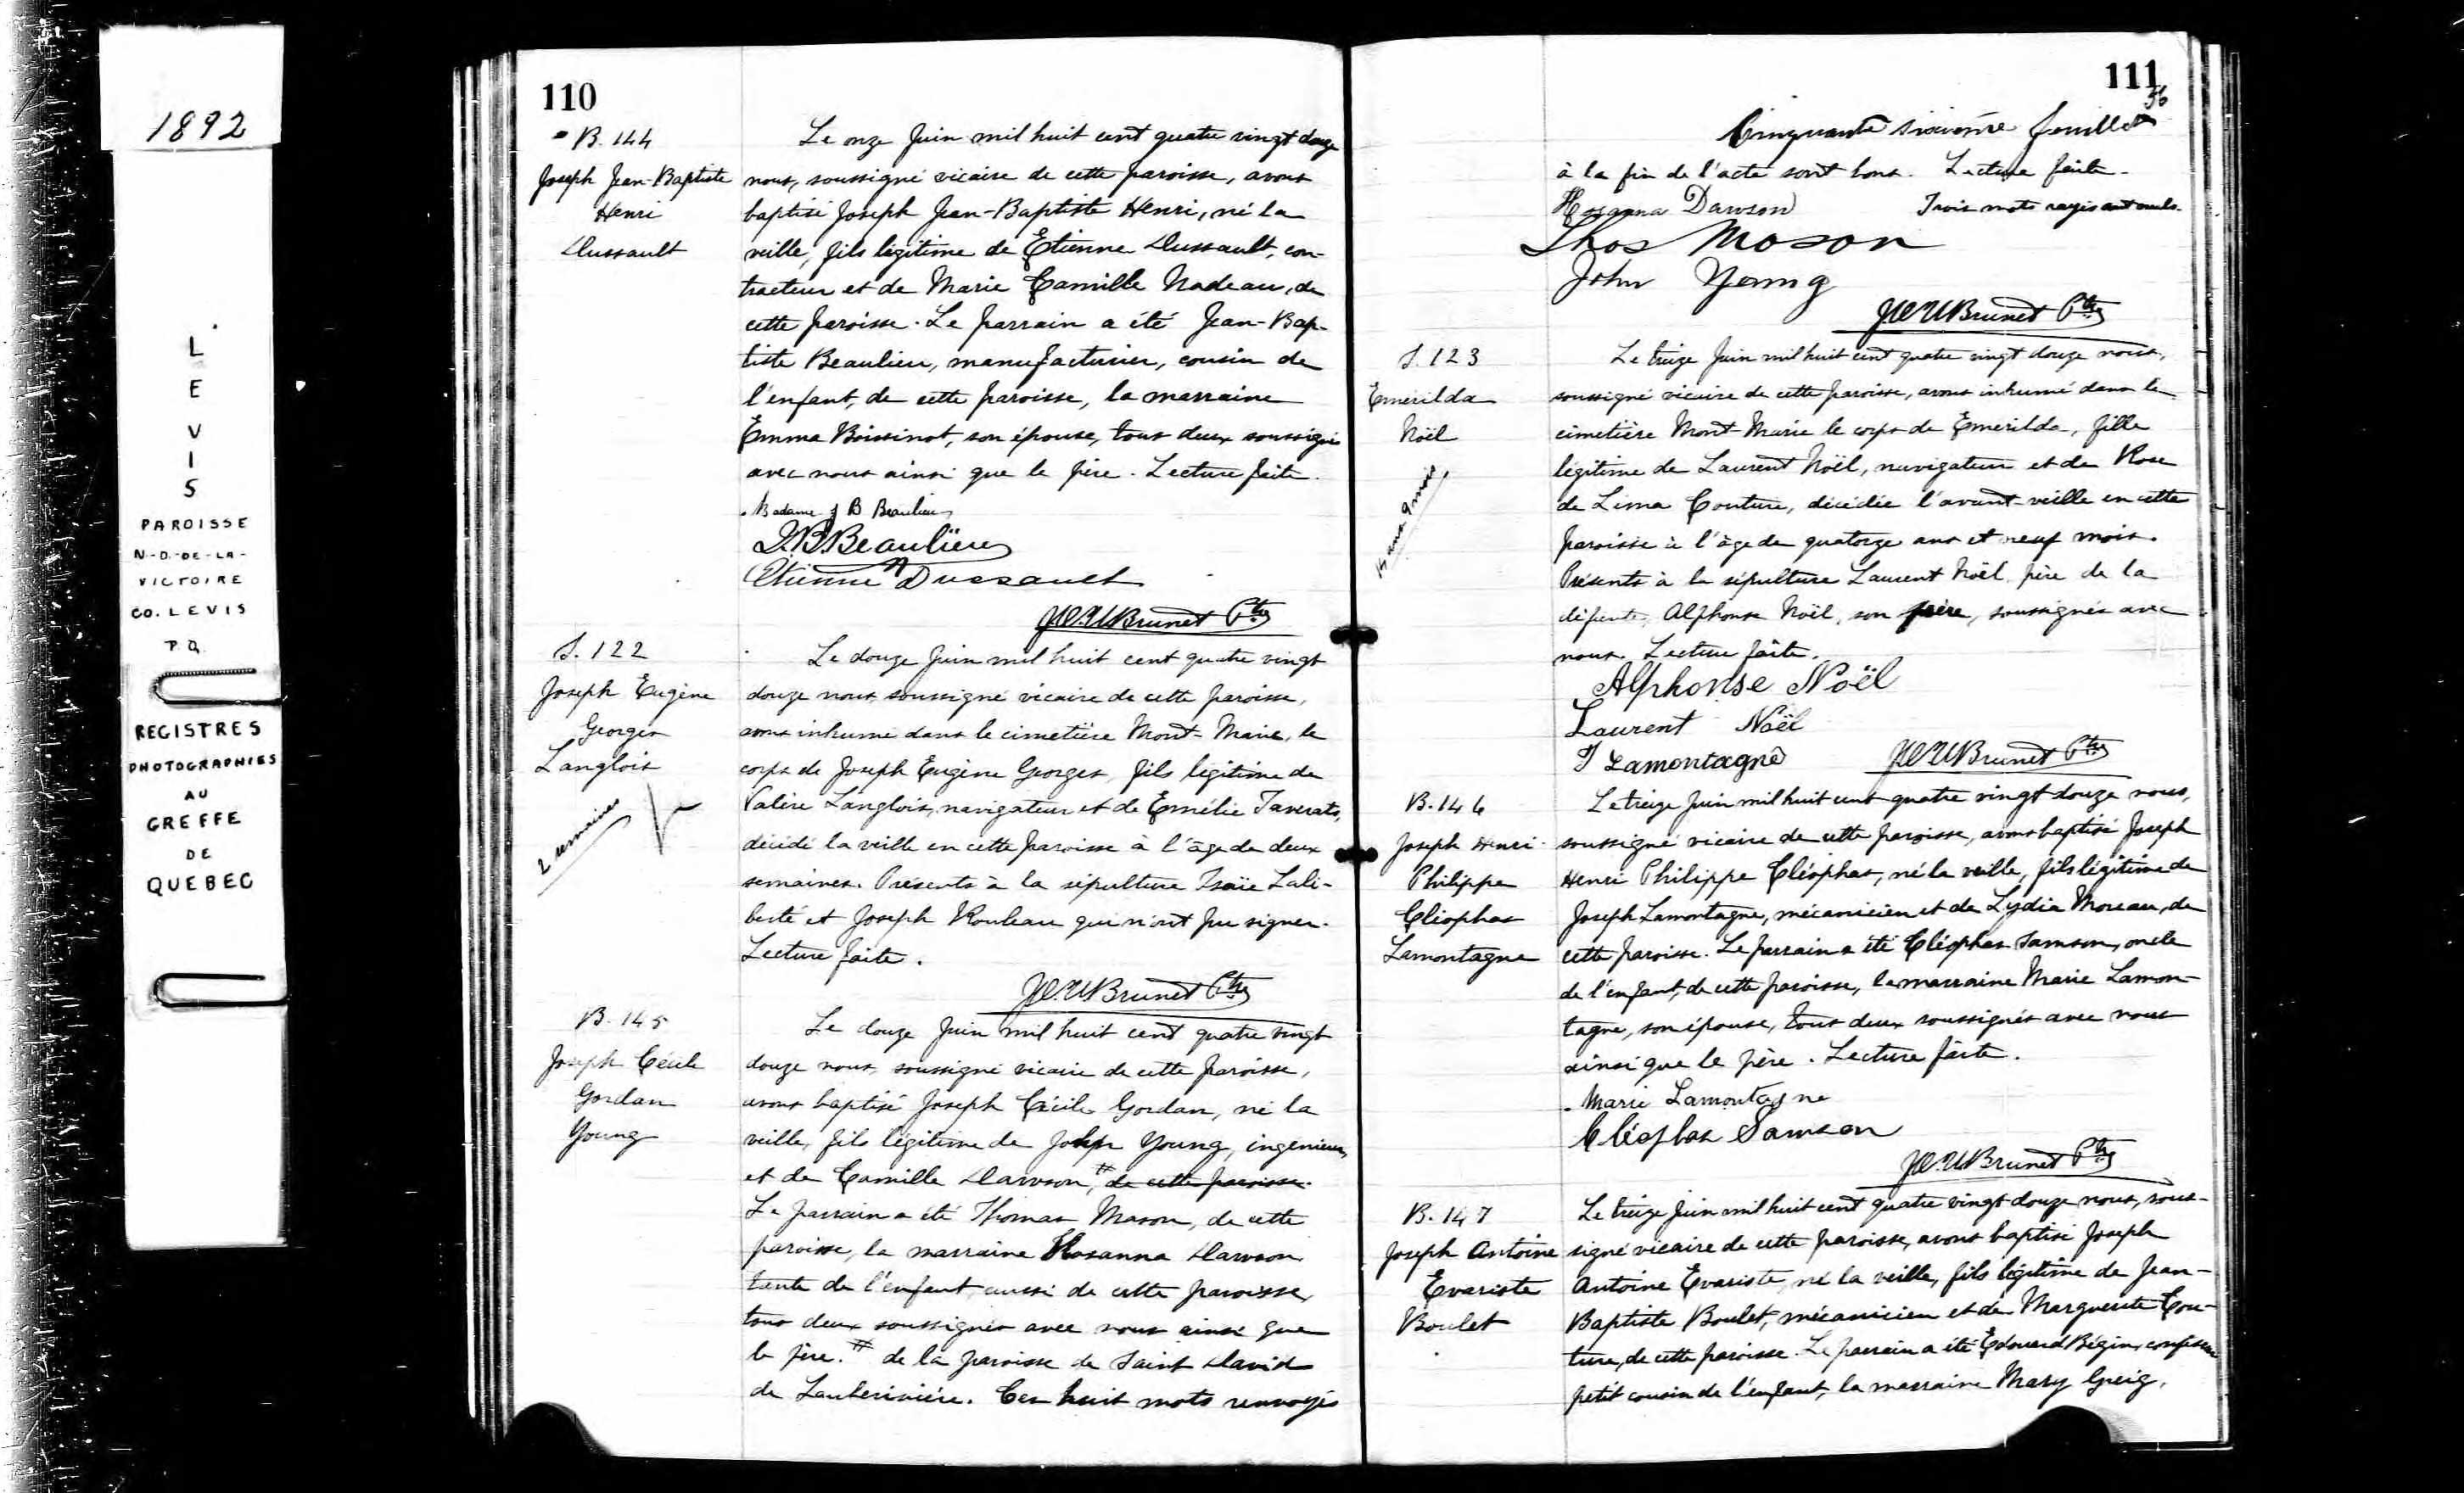 1892
L
E
V
I
S
PAROISSE
N.-D.-DE-LA-
VICTOIRE
CO. LEVIS
P.Q.
REGISTRES
PHOTOGRAPHIES
AU
GREFFE
DE
QUEBEC
110
B. 144
Joseph Jean-Baptiste
Henri
Dussault
Le onze Juin mil huit cent quatre vingt douze
nous, soussigné vicaire de cette paroisse, avons
baptisé Joseph Jean-Baptiste Henri, né la
veille, fils légitime de Etienne Dussault, con-
tracteur et de Marie Camille Nadeau, de
cette paroisse. Le parrain a été Jean-Bap-
tiste Beaulieu, manufacturier, cousin de
l'enfant, de cette paroisse, la marraine
Emma Boissinot, son épouse, tous deux soussignés
avec nous ainsi que le père. Lecture faite.
Madame J B Beaulieu
J.B.Beaulieu
Etienne Dussault
Brunet Ptre
S. 122
Joseph Eugène
Georges
Langlois
2 semaines
Le douze Juin mil huit cent quatre vingt
douze nous, soussigné vicaire de cette paroisse,
avons inhumé dans le cimetière Mont-Marie, le
corps de Joseph Eugène Georges, fils légitime de
Valère Langlois, navigateur et de Emélie
décédé la veille en cette paroisse à l'âge de deux
semaines. Présents à la sépulture Isaïe Lali-
berté et Joseph Rouleau qui n'ont pu signer.
Lecture faite.
Brunet Ptre
B. 145
Joseph Cécile
Gordan
Young
Le douze Juin mil huit cent quatre vingt
douze nous, soussigné vicaire de cette paroisse,
avons baptisé Joseph Cécile Gordan, né la
veille, fils légitime de John Young, ingénieur,
et de Camille Dawson, # de cette paroisse.
Le parrain a été Thomas Mason, de cette
paroisse, la marraine Rosanna Dawson
tante de l'enfant, aussi de cette paroisse,
tous deux soussignés avec nous ainsi que
le père. # de la paroisse de Saint David
de Lauberivière. Ces huit mots renvoyés
111
56
Cinquante sixième feuillet
à la fin de l'acte sont bons. Lecture faite.
Rosanna Dawson Trois mots rayés sont nuls.
Thos Mason
John Young
Brunet Ptre
S. 123
Emérilda
Noël
Le treize Juin mil huit cent quatre vingt douze nous,
soussigné vicaire de cette paroisse, avons inhumé dans le
cimetière Mont-Marie le corps de Emérilda, fille
légitime de Laurent Noël, navigateur et de Rose
de Lima Couture, décédée l'avant-veille en cette
paroisse à l'âge de quatorze ans et neuf mois.
Présents à la sépulture Laurent Noël père de la
défunte, Alphonse Noël, son frère, soussignés avec
nous. Lecture faite.
Alphonse Noël
Laurent Noël
J Lamontagne Brunet Ptre
B. 146
Joseph Henri
Philippe
Cléophas
Lamontagne
Le treize Juin mil huit cent quatre vingt douze nous,
soussigné vicaire de cette paroisse, avons baptisé Joseph
Henri Philippe Cléophas, né la veille, fils légitime de
Joseph Lamontagne, mécanicien et de Lydia Moreau, de
cette paroisse. Le parrain a été Cléophas Samson, oncle
de l'enfant, de cette paroisse, la marraine Marie Lamon-
tagne, son épouse, tous deux soussignés avec nous
ainsi que le père. Lecture faite.
Marie Lamontagne
Cléophas Samson
Brunet Ptre
B. 147
Joseph Antoine
Evariste
Boulet
Le treize Juin mil huit cent quatre vingt douze nous, sous-
signé vicaire de cette paroisse, avons baptisé Joseph
Antoine Evariste, né la veille, fils légitime de Jean-
Baptiste Boulet, mécanicien et de Marguerite Cou-
ture, de cette paroisse. Le parrain a été Edouard Bégin,
petit cousin de l'enfant, la marraine Mary Greig,